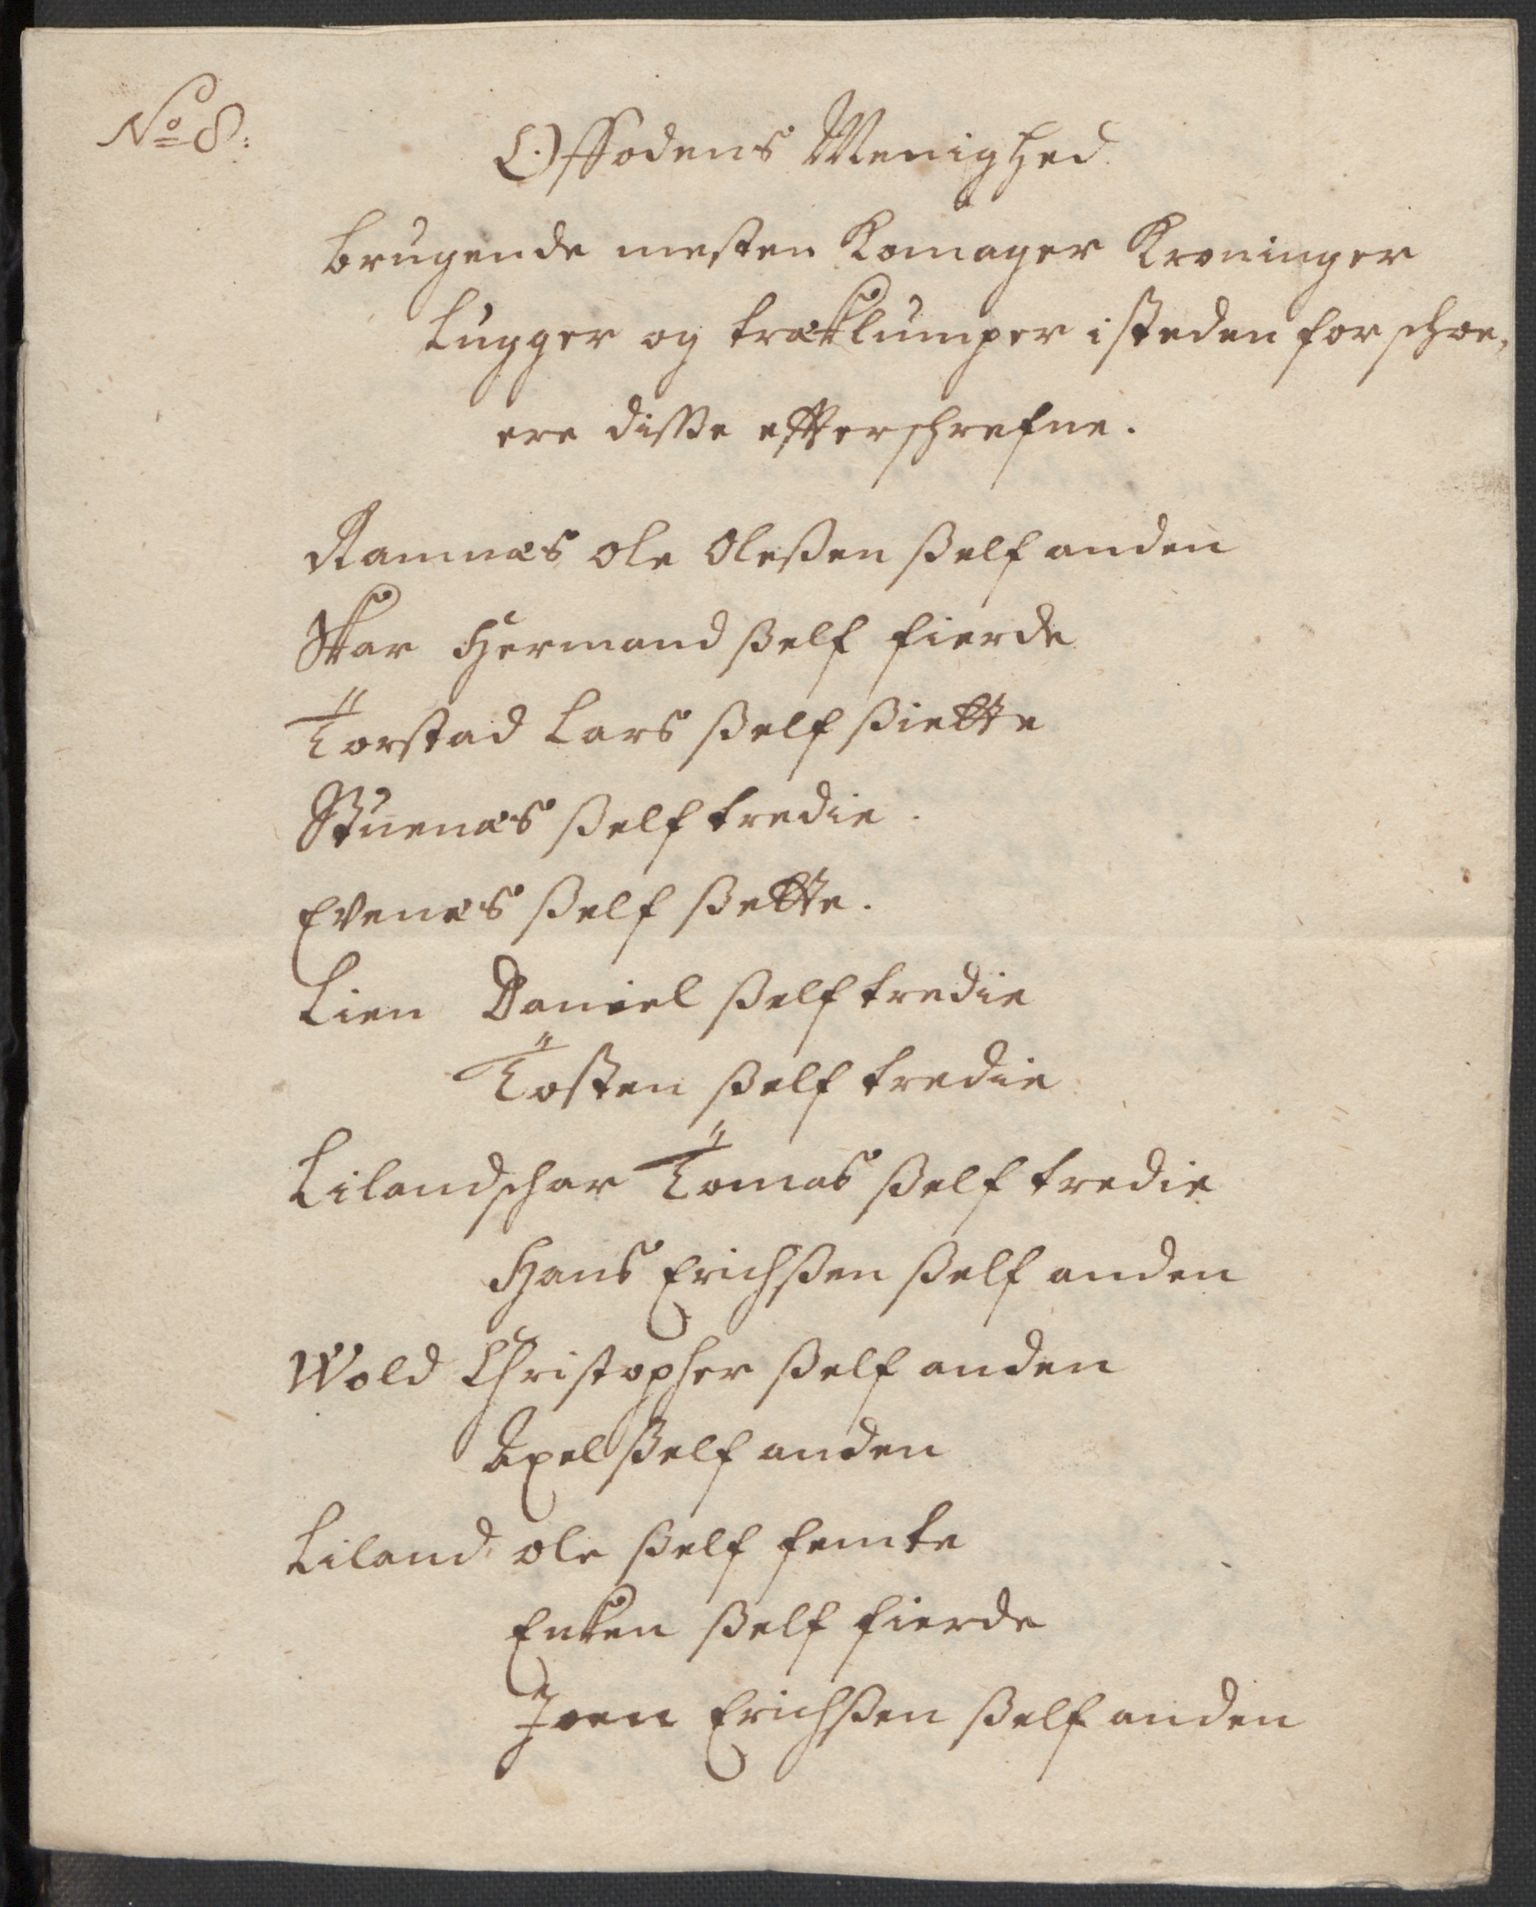 No 8:
Offodens Menighed
brugende mesten Komager Kroninger
Lugger og træklumper i steden for schoe,
ere disse effterschrefne.
Ramnæs ole Oleßen ßelf anden
Skar Hermand ßelf fierde
Torstad Lars ßelf ßiette
Stuenæs ßelf tredie.
Evenæs ßelf ßette.
Lien Daniel ßelf tredie
Tosten ßelf tredie
Lilandschar Tomas ßelf tredie
Hans Erichßen ßelf anden
Wold Christopher ßelf anden
Axel ßelf anden
Liland ole ßelf femte
Enken ßelf fierde
Joen Erichßen ßelf anden